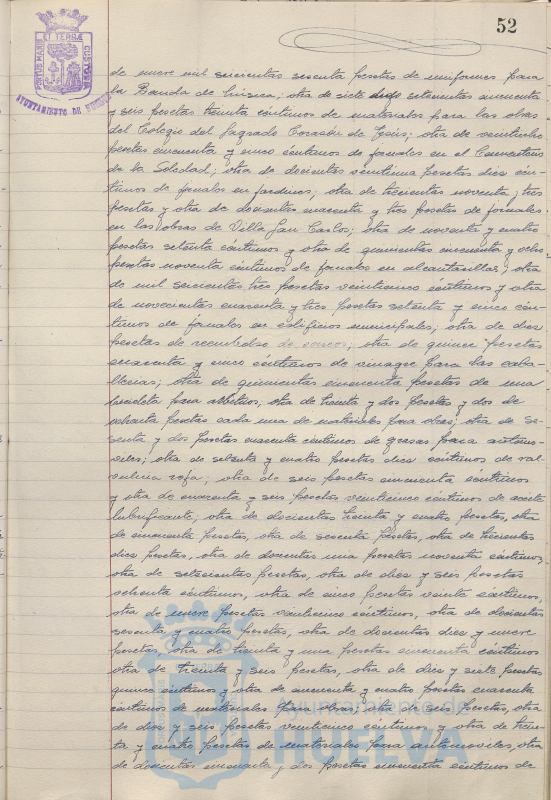 52
PORTUS MARIS ET TERRÆ CUSTODIA
AYUNTAMIENTO DE HUELVA
de nueve mil seiscientas sesenta pesetas de uniformes para
la Banda de Música; otra de siete setecientas cincuenta
y seis pesetas treinta céntimos de materiales para las obras
del Colegio del Sagrado Corazón de Jesús; otra de veintiocho
pesetas cincuenta y cinco céntimos de jornales en el Cementerio
de la Soledad; otra de doscientas veintiuna pesetas diez cén-
timos de jornales en jardines; otra de trescientas noventa y tres
pesetas y otra de doscientas cuarenta y tres pesetas de jornales
en las obras de Villa San Carlos; otra de noventa y cuatro
pesetas setenta céntimos y otra de quinientas cincuenta y ocho
pesetas noventa céntimos de jornales en alcantarillas; otra
de mil seiscientas tres pesetas veinticinco céntimos y otra
de novecientas cuarenta y tres pesetas setenta y cinco cén-
timos de jornales en edificios municipales; otra de diez
pesetas de reembolso de ; otra de quince pesetas
cuarenta y cinco céntimos de vinagre para las caba-
llerías; otra de quinientas cincuenta pesetas de una
bicicleta para arbitrios; otra de treinta y dos pesetas y dos de
ochenta pesetas cada una de materiales para obras; otra de se-
senta y dos pesetas cuarenta céntimos de grasas para automó-
viles; otra de setenta y cuatro pesetas diez céntimos de val-
vulina roja; otra de seis pesetas cincuenta céntimos
y otra de cuarenta y seis pesetas veinticinco céntimos de aceite
lubrificante; otra de doscientas treinta y cuatro pesetas, otra
de cincuenta pesetas, otra de sesenta pesetas, otra de trescientas
diez pesetas, otra de doscientas una pesetas noventa céntimos,
otra de setecientas pesetas, otra de diez y seis pesetas
ochenta céntimos, otra de cinco pesetas veinte céntimos,
otra de nueve pesetas veinticinco céntimos, otra de doscientas
sesenta y cuatro pesetas, otra de doscientas diez y nueve
pesetas, otra de treinta y una pesetas cincuenta céntimos
otra de treinta y seis pesetas, otra de diez y siete pesetas
quince céntimos y otra de cincuenta y cuatro pesetas cuarenta
céntimos de materiales para obras; otra de pesetas, otra
de diez y seis pesetas veinticinco céntimos y otra de trein-
ta y cuatro pesetas de materiales para automóviles, otra
de doscientas cincuenta y dos pesetas cincuenta céntimos de
Ayuntamiento de
HUELVA